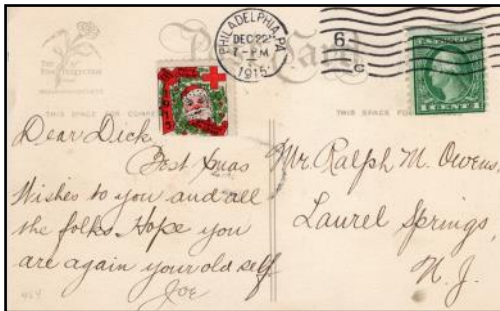 Post Card
THE
ROSE
PHILADELPHIA, PA.
DEC 22
7-PM
1915
6
C
1 CENT 1
THIS SPACE FOR
THIS SPACE FOR
Dear Dick
Best Xmas
Wishes to you and all
the folks. Hope you
are again your old self
Joe
Mr. Ralph M. Owens,
Laurel Springs,
N. J.